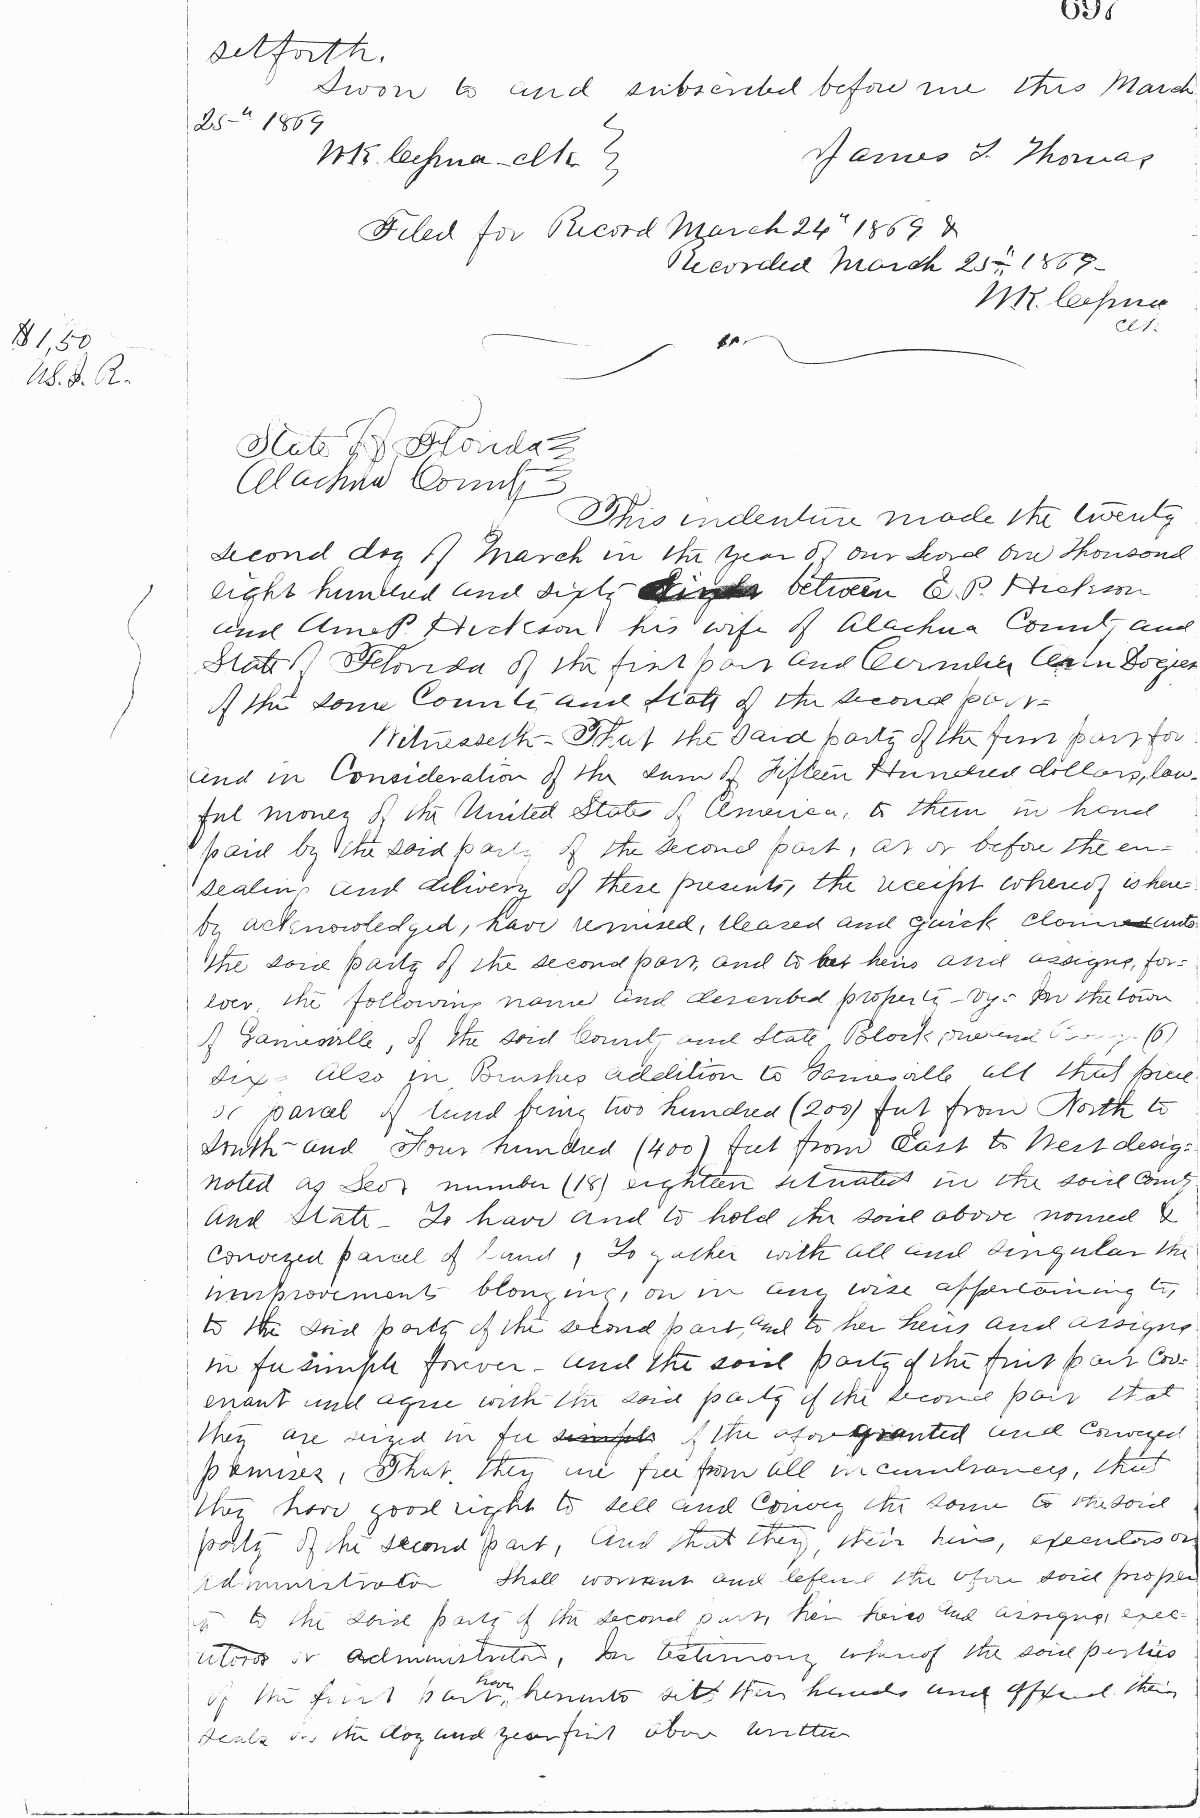 697
setforth.
Swon to and subscribed before me this March
25th 1869
WK. Cessna - clk
James T. Thomas
Filed for Record March 24" 1869 &
Recorded March 25th 1869-
WK. Cessna
clk.
$1,50
U.S.I.R.
State of Florida
Alachua County
This indenture made the twenty
second day of March in the year of our Lord one thousand
eight hundred and sixty between E. P. Hickson
and Ame P. Hickson his wife of Alachua County and
State of Florida of the first part and Ann
of the same County and State of the second part-
Witnesseth- That the said party of the first part for
and in Consideration of the sum of Fifteen Hundred dollars, law-
ful money of the United States of America, to them in hand
paid by the said party of the second part, at or before the en=
sealing and delivery of these presents, the receipt whereof is here=
by acknowledged, have remised, released and quick claimed unto
the said party of the second part, and to her heirs and assigns, for=
ever, the following name and described property - vz:- In the town
of Gainesville, of the said County and State, Block one and (6)
six= Also in Brushes addition to Gainesville all that piece
or parcel of land being two hundred (200) feet from North to
South- and Four hundred (400) feet from East to West desig=
nated as number (18) eighteen situated in the said County
and State - To have and to hold the said above named &
conveyed parcel of land, To gather with all and singular the
improvements blonging, or in any wise appertaining to,
to the said party of the second part, and to her heirs and assigns
in fee simple forever - and the said party of the first part Cov=
enant and agree with the said party of the second part that
they are seized in fee simple of the afore granted and conveyed
premises, That, they are free from all incumbrances, that
they have good right to sell and convey the same to the said
party of the second part, And that they, their heirs, executors or
administrator Shall warrant and defend the afore said proper
ty to the said party of the second part, her heirs and assigns, exec=
utors or administrators, In testimony whereof the said parties
of the first part, have hereunto sett their hands and affixed their
seals on the day and year first above written